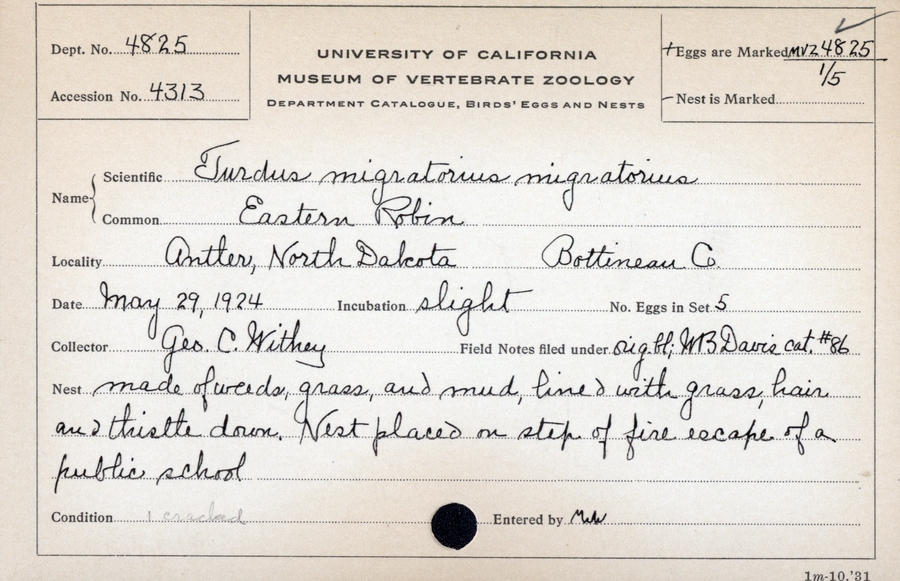 Dept. No. 4825
Accession No. 4313
UNIVERSITY OF CALIFORNIA
MUSEUM OF VERTEBRATE ZOOLOGY
DEPARTMENT CATALOGUE, BIRDS' EGGS AND NESTS
+Eggs are Marked MVZ 4825
1/5
–Nest is Marked
Name
Scientific Turdus migratorius migratorius
Common Eastern Robin
Locality Antler, North Dakota Bottineau Co.
Date May 29, 1924 Incubation slight No. Eggs in Set 5
Collector Geo. C. Withey Field Notes filed under orig bl; WB Davis cat. #86
Nest made of weeds, grass, and mud, lined with grass, hair
and thistle down. Nest placed on step of fire escape of a
public school
Condition 1 cracked Entered by
1m-10,'31